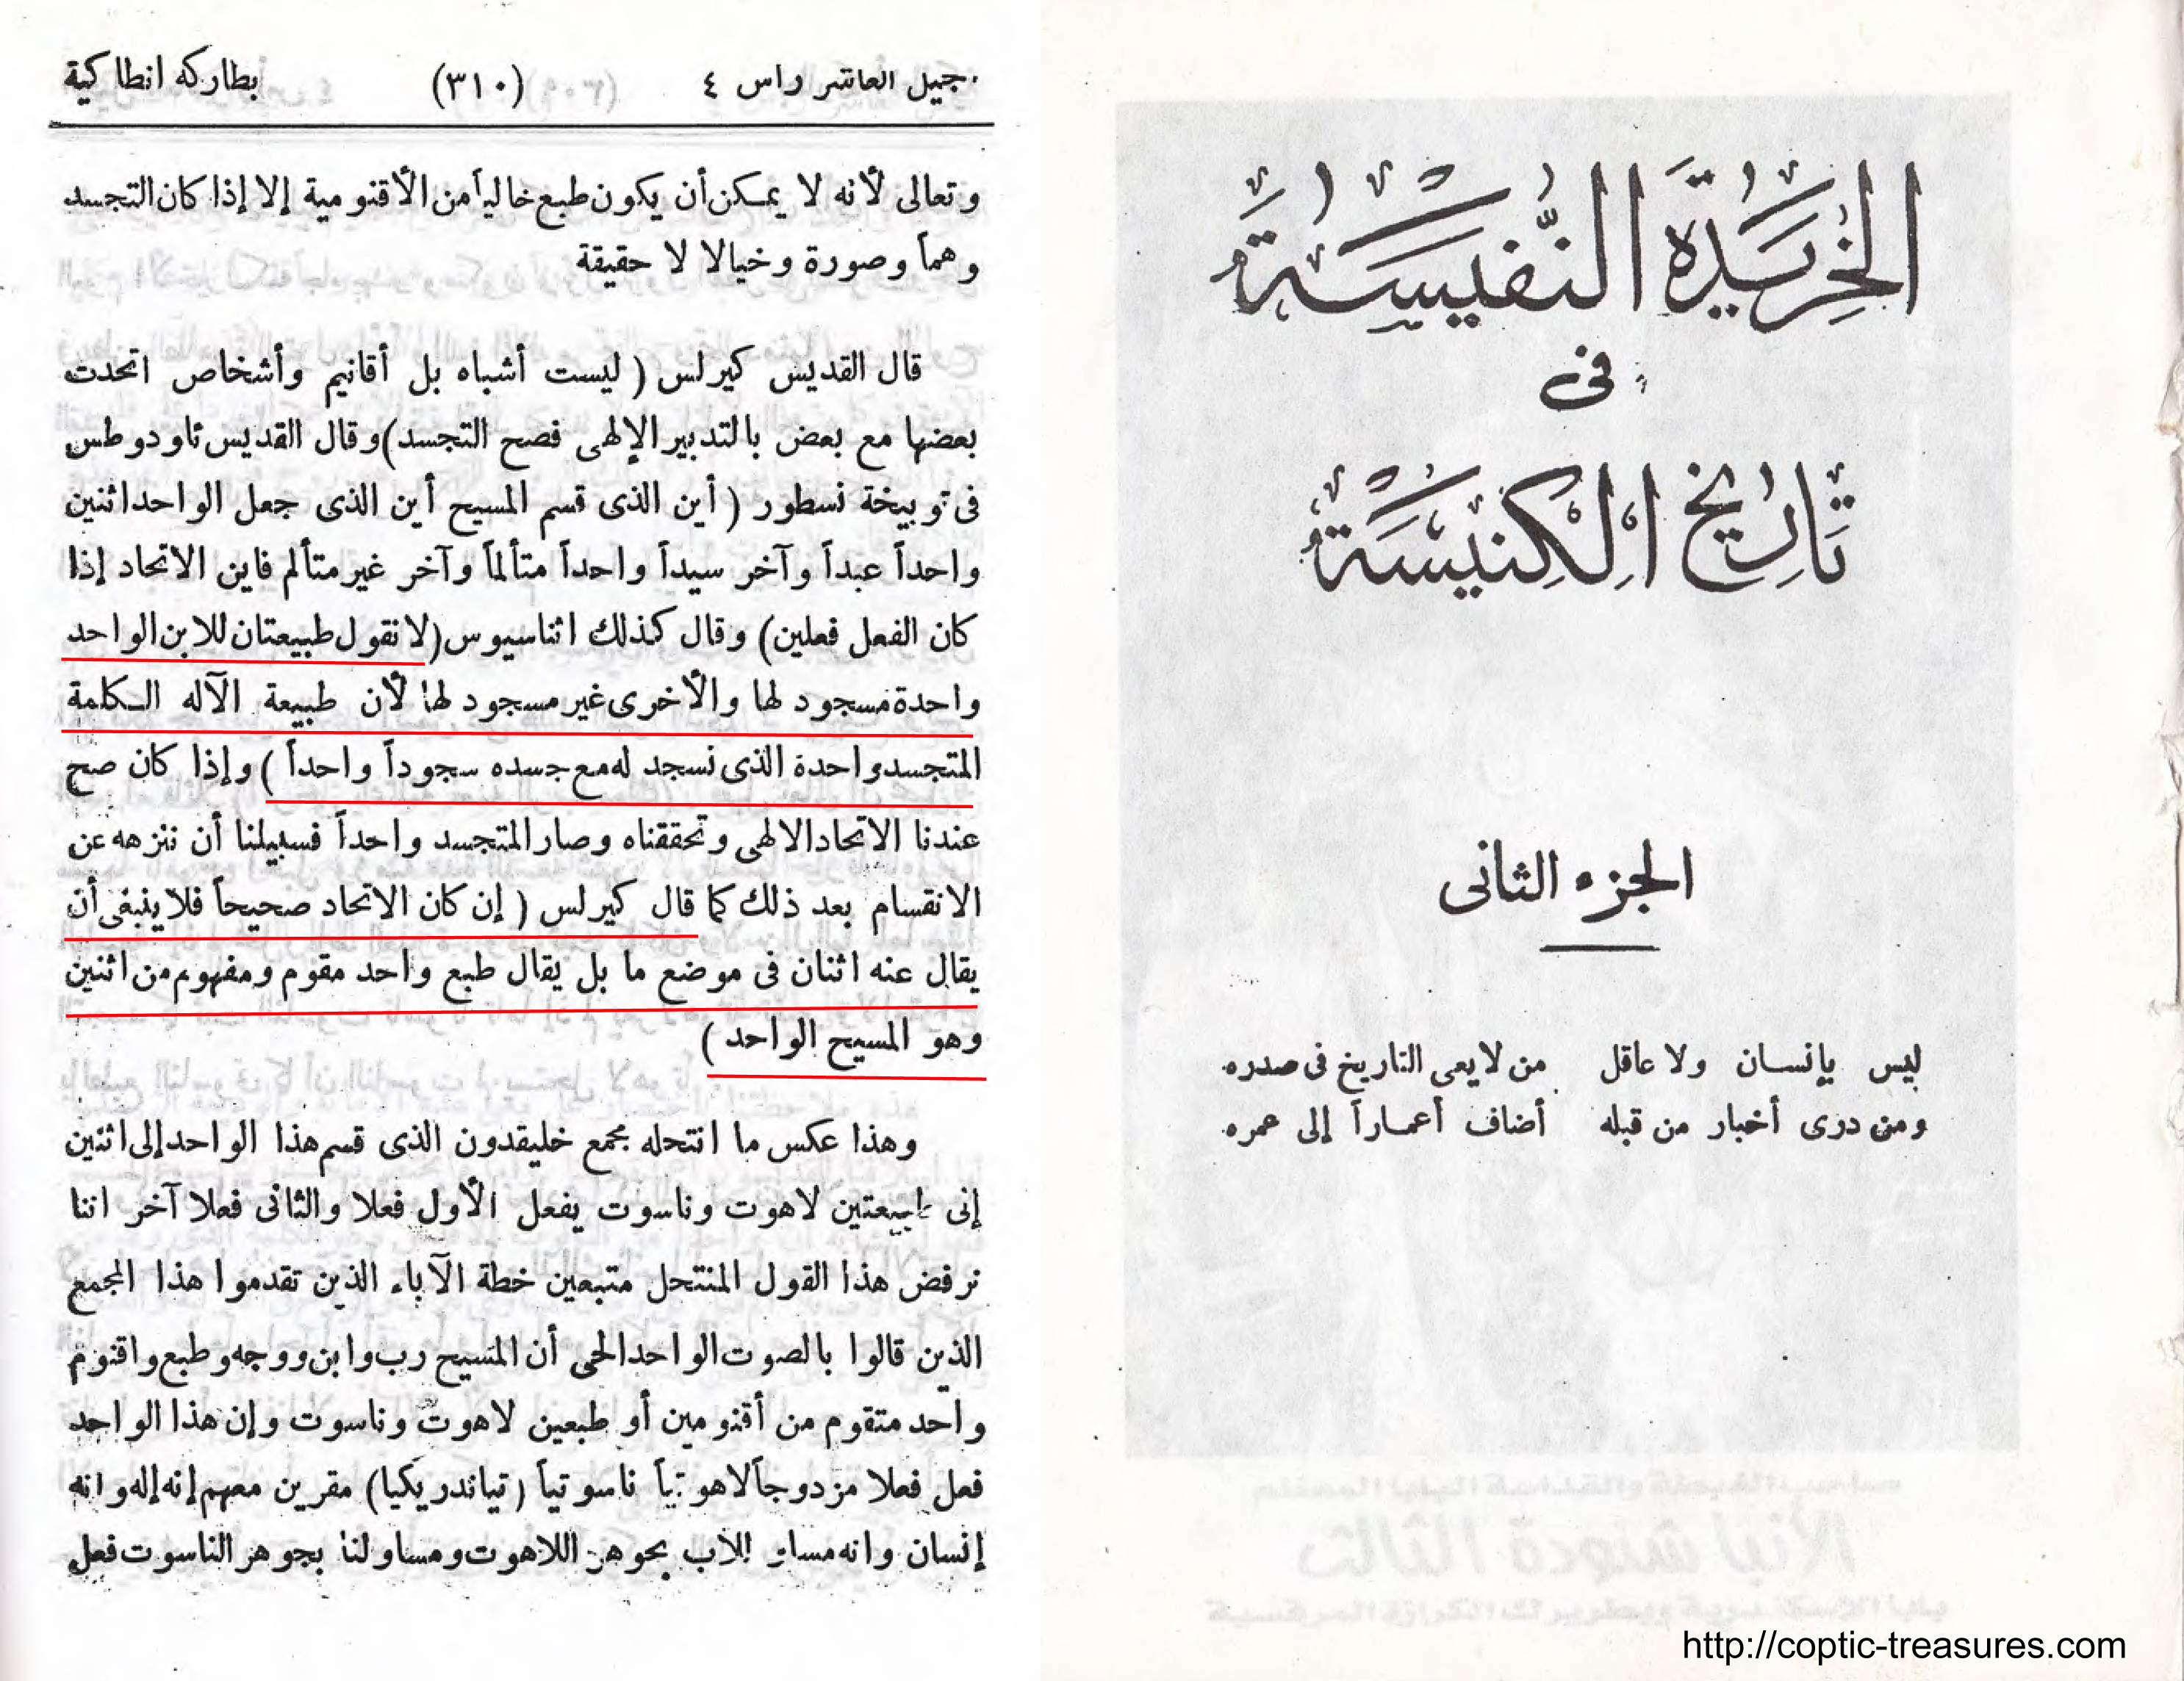 الخريدة النفيسة
فى
تاريخ الكنيسة
الجزء الثانى
ليس بإنسان ولا عاقل من لا يعى التاريخ فى صدره
ومن درى أخبار من قبله أضاف أعماراً إلى عمره
http://coptic-treasures.com
جيل العاشر راس ٤ (٣١٠) بطاركه انطاكية
وتعالى لأنه لا يمكن أن يكون طبع خالياً من الأقنومية إلا إذا كان التجسد
وهماً وصورة وخيالا لا حقيقة
قال القديس كيرلس ( ليست أشباه بل أقانيم وأشخاص اتحدت
بعضها مع بعض بالتدبير الإلهى فصح التجسد) وقال القديس ثاودوطس
فى توبيخة نسطور ( أين الذى قسم المسيح أين الذى جعل الواحد اثنين
واحداً عبداً وآخر سيداً واحداً متألماً وآخر غير متألم فاين الاتحاد إذا
كان الفعل فعلين) وقال كذلك اثناسيوس (لا نقول طبيعتان للابن الواحد
واحدة مسجود لها والأخرى غير مسجود لها لأن طبيعة الآله الكلمة
المتجسد واحدة الذى نسجد له مع جسده سجوداً واحداً ) وإذا كان صح
عندنا الاتحاد الالهى وتحققناه وصار المتجسد واحداً فسبيلنا أن ننزهه عن
الانقسام بعد ذلك كما قال كيرلس ( إن كان الاتحاد صحيحاً فلا ينبغى أن
يقال عنه اثنان فى موضع ما بل يقال طبع واحد مقوم ومفهوم من اثنين
وهو المسيح الواحد )
وهذا عكس ما انتحله مجمع خليقدون الذى قسم هذا الواحد إلى اثنين
إنى طبيعتين لاهوت وناسوت يفعل الأول فعلا والثانى فعلا آخر اننا
نرفض هذا القول المنتحل متبعين خطة الآباء الذين تقدموا هذا المجمع
الذين قالوا بالصوت الواحد الحى أن المسيح رب وابن ووجه وطبع واقنوم
واحد متقوم من أقنومين أو طبعين لاهوت وناسوت وإن هذا الواحد
فعل فعلا مزدوجاً لاهوتياً ناسوتياً (تياندريكيا) مقرين معهم إنه إله وانه
إنسان وانه مساو للآب بجوهر اللاهوت ومساو لنا بجوهر الناسوت فعل